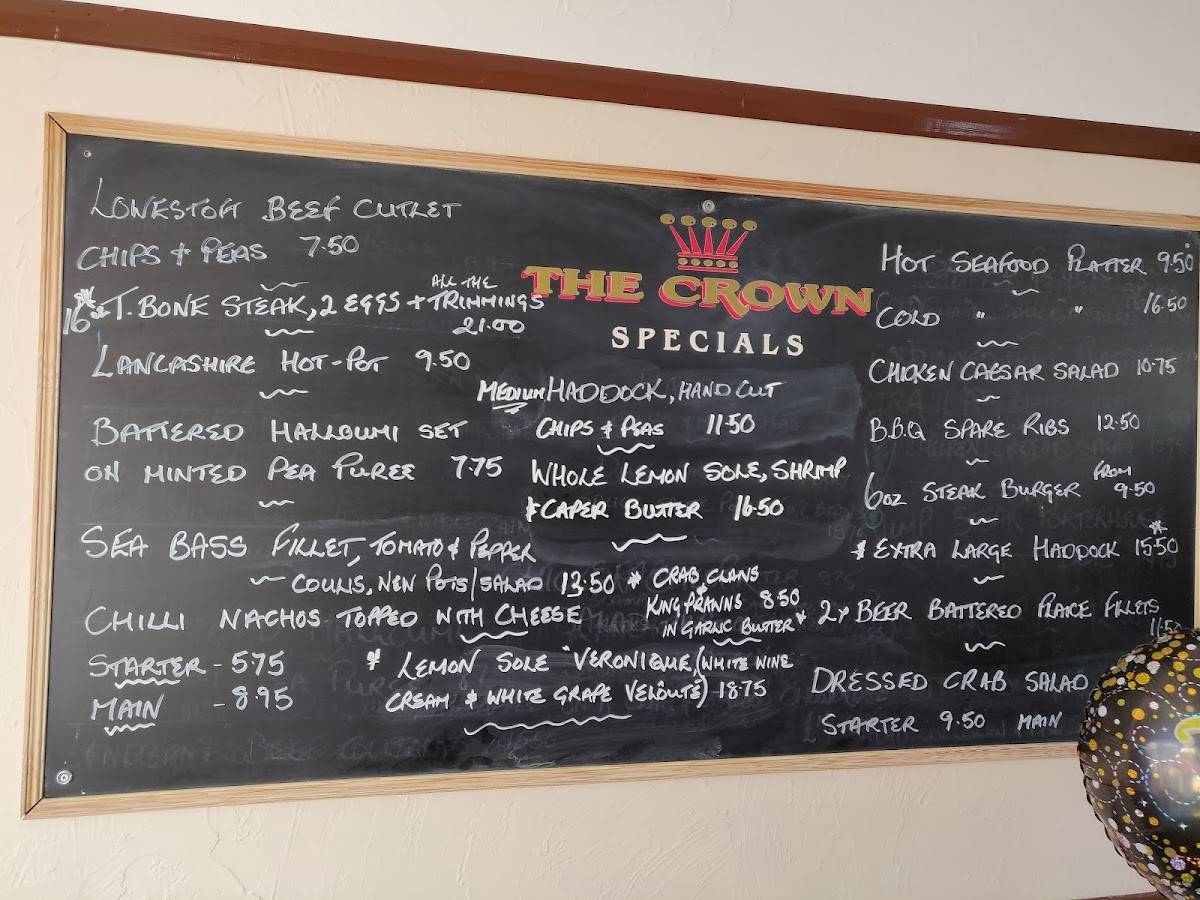 LOWESTOFT BEEF CUTLET
CHIPS & PEAS 7.50
16oz T. BONE STEAK, 2 EGGS + ALL THE TRIMMINGS
21.00
LANCASHIRE HOT-POT 9.50
BATTERED HALLOUMI SET
ON MINTED PEA PUREE 7.75
SEA BASS FILLET, TOMATO & PEPPER
COULIS, NEW POTS/SALAD 13.50
CHILLI NACHOS TOPPED WITH CHEESE
STARTER - 575
MAIN - 8.95
THE CROWN
SPECIALS
MEDIUM HADDOCK, HAND CUT
CHIPS & PEAS 11.50
WHOLE LEMON SOLE, SHRIMP
& CAPER BUTTER 16.50
* CRAB, CLAMS
& KING PRAWNS 8.50
IN GARLIC BUTTER *
* LEMON SOLE "VERONIQUE, (WHITE WINE
CREAM & WHITE GRAPE VELOUTÉ) 18.75
HOT SEAFOOD PLATTER 9.50
COLD " " 16.50
CHICKEN CAESAR SALAD 10.75
B.B.Q SPARE RIBS 12.50
6oz STEAK BURGER FROM 9.50
* EXTRA LARGE HADDOCK 15.50 *
2x BEER BATTERED PLAICE FILLETS
DRESSED CRAB SALAD
STARTER 9.50 MAIN